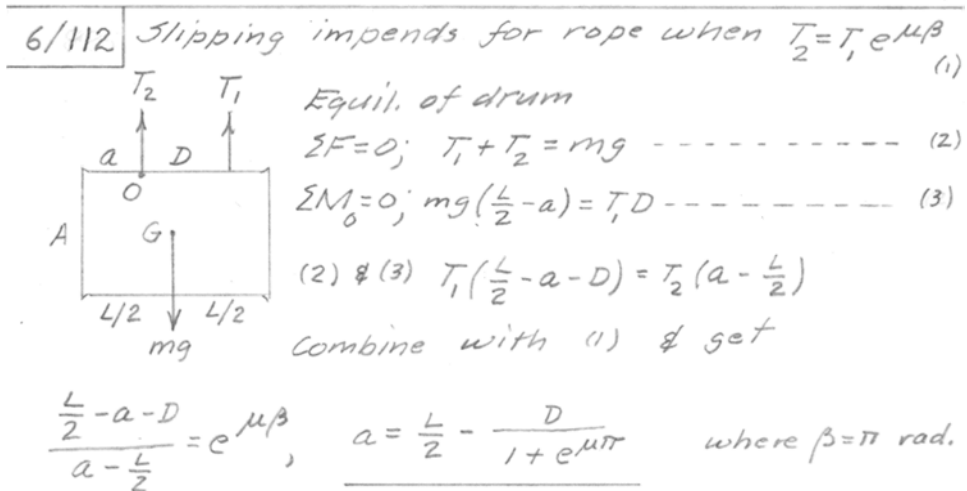 6/112 Slipping impends for rope when T₂ = T₁ e^μβ
(1)
T₂ T₁
Equil. of drum
ΣF=0; T₁ + T₂ = mg ---------- (2)
a D
O
ΣM₀=0; mg(L/2 - a) = T₁D ---------- (3)
A G
(2) & (3) T₁(L/2 - a - D) = T₂(a - L/2)
L/2 L/2
mg
Combine with (1) & get
(L/2 - a - D)/(a - L/2) = e^μβ, a = L/2 - D/(1 + e^μπ) where β=π rad.